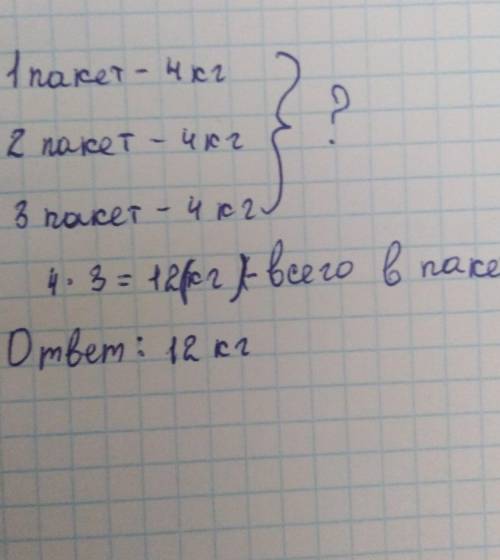 1 пакет - 4 кг
2 пакет - 4 кг } ?
3 пакет - 4 кг
4 · 3 = 12(кг) - всего в паке
Ответ: 12 кг